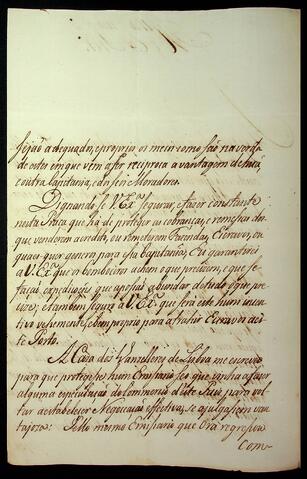 Sejaõ adequados, e proprios os meios como saõ na verdᵉ
de estes em que vem a ser reciproca a vantagem de huã,
e outra Capitania, e dos seus Moradores.
Dignando-se V. Exᵃ segurar, e fazer constante
nesta Praça que ha de proteger as cobranças, e remessas dos
que venderem a credito, ou remeterem Fazendas, Escravos, ou
quaesquer generos para essa Capitania; Eu garantirei
a V. Exᵃ que os comboeiros achem o que precizem, e que se
façaõ expediçoens que a possaõ abundar de tudo o que pre-
cize; e tambem seguro a V. Exᵃ que será este hum incen-
tivo vehemente, e bem proprio para attrahir Escravos a es-
te Porto.
A Caza dos Vanzelleres de Lisboa me escreveo
para que protegesse hum Emissario seo que vinha a fazer
alguma especulaçaõ do Commercio deste Paiz, para vol-
tar a estabelecer Negociaçaõ effectiva, se a julgassem van-
tajoza: Pello mesmo Emissario que ora regressa
Com-